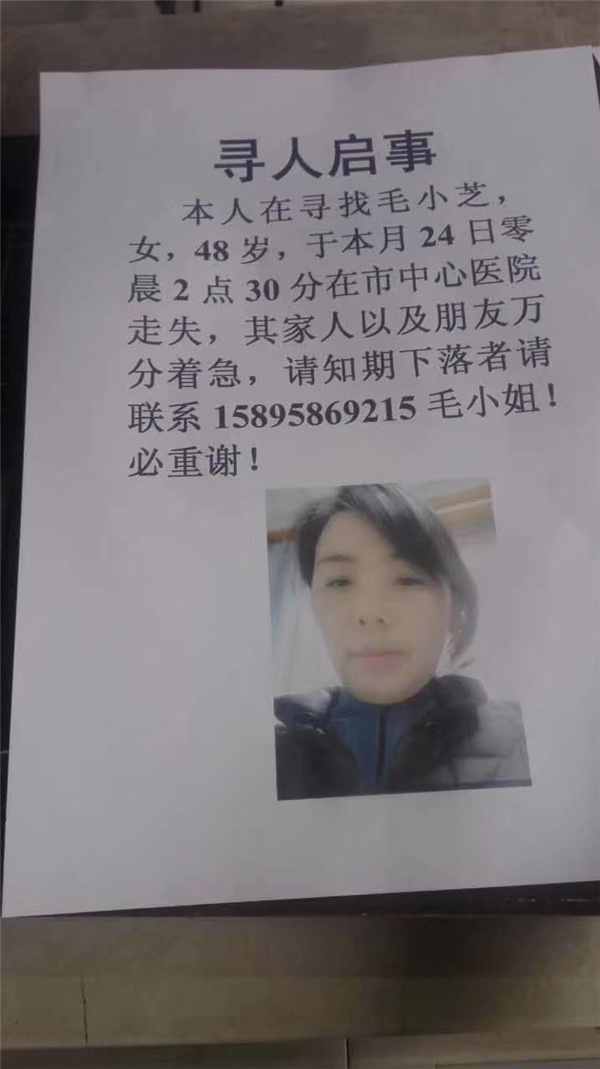 寻人启事
本人在寻找毛小芝，
女，48 岁，于本月 24 日零
晨 2 点 30 分在市中心医院
走失，其家人以及朋友万
分着急，请知期下落者请
联系 15895869215 毛小姐！
必重谢！